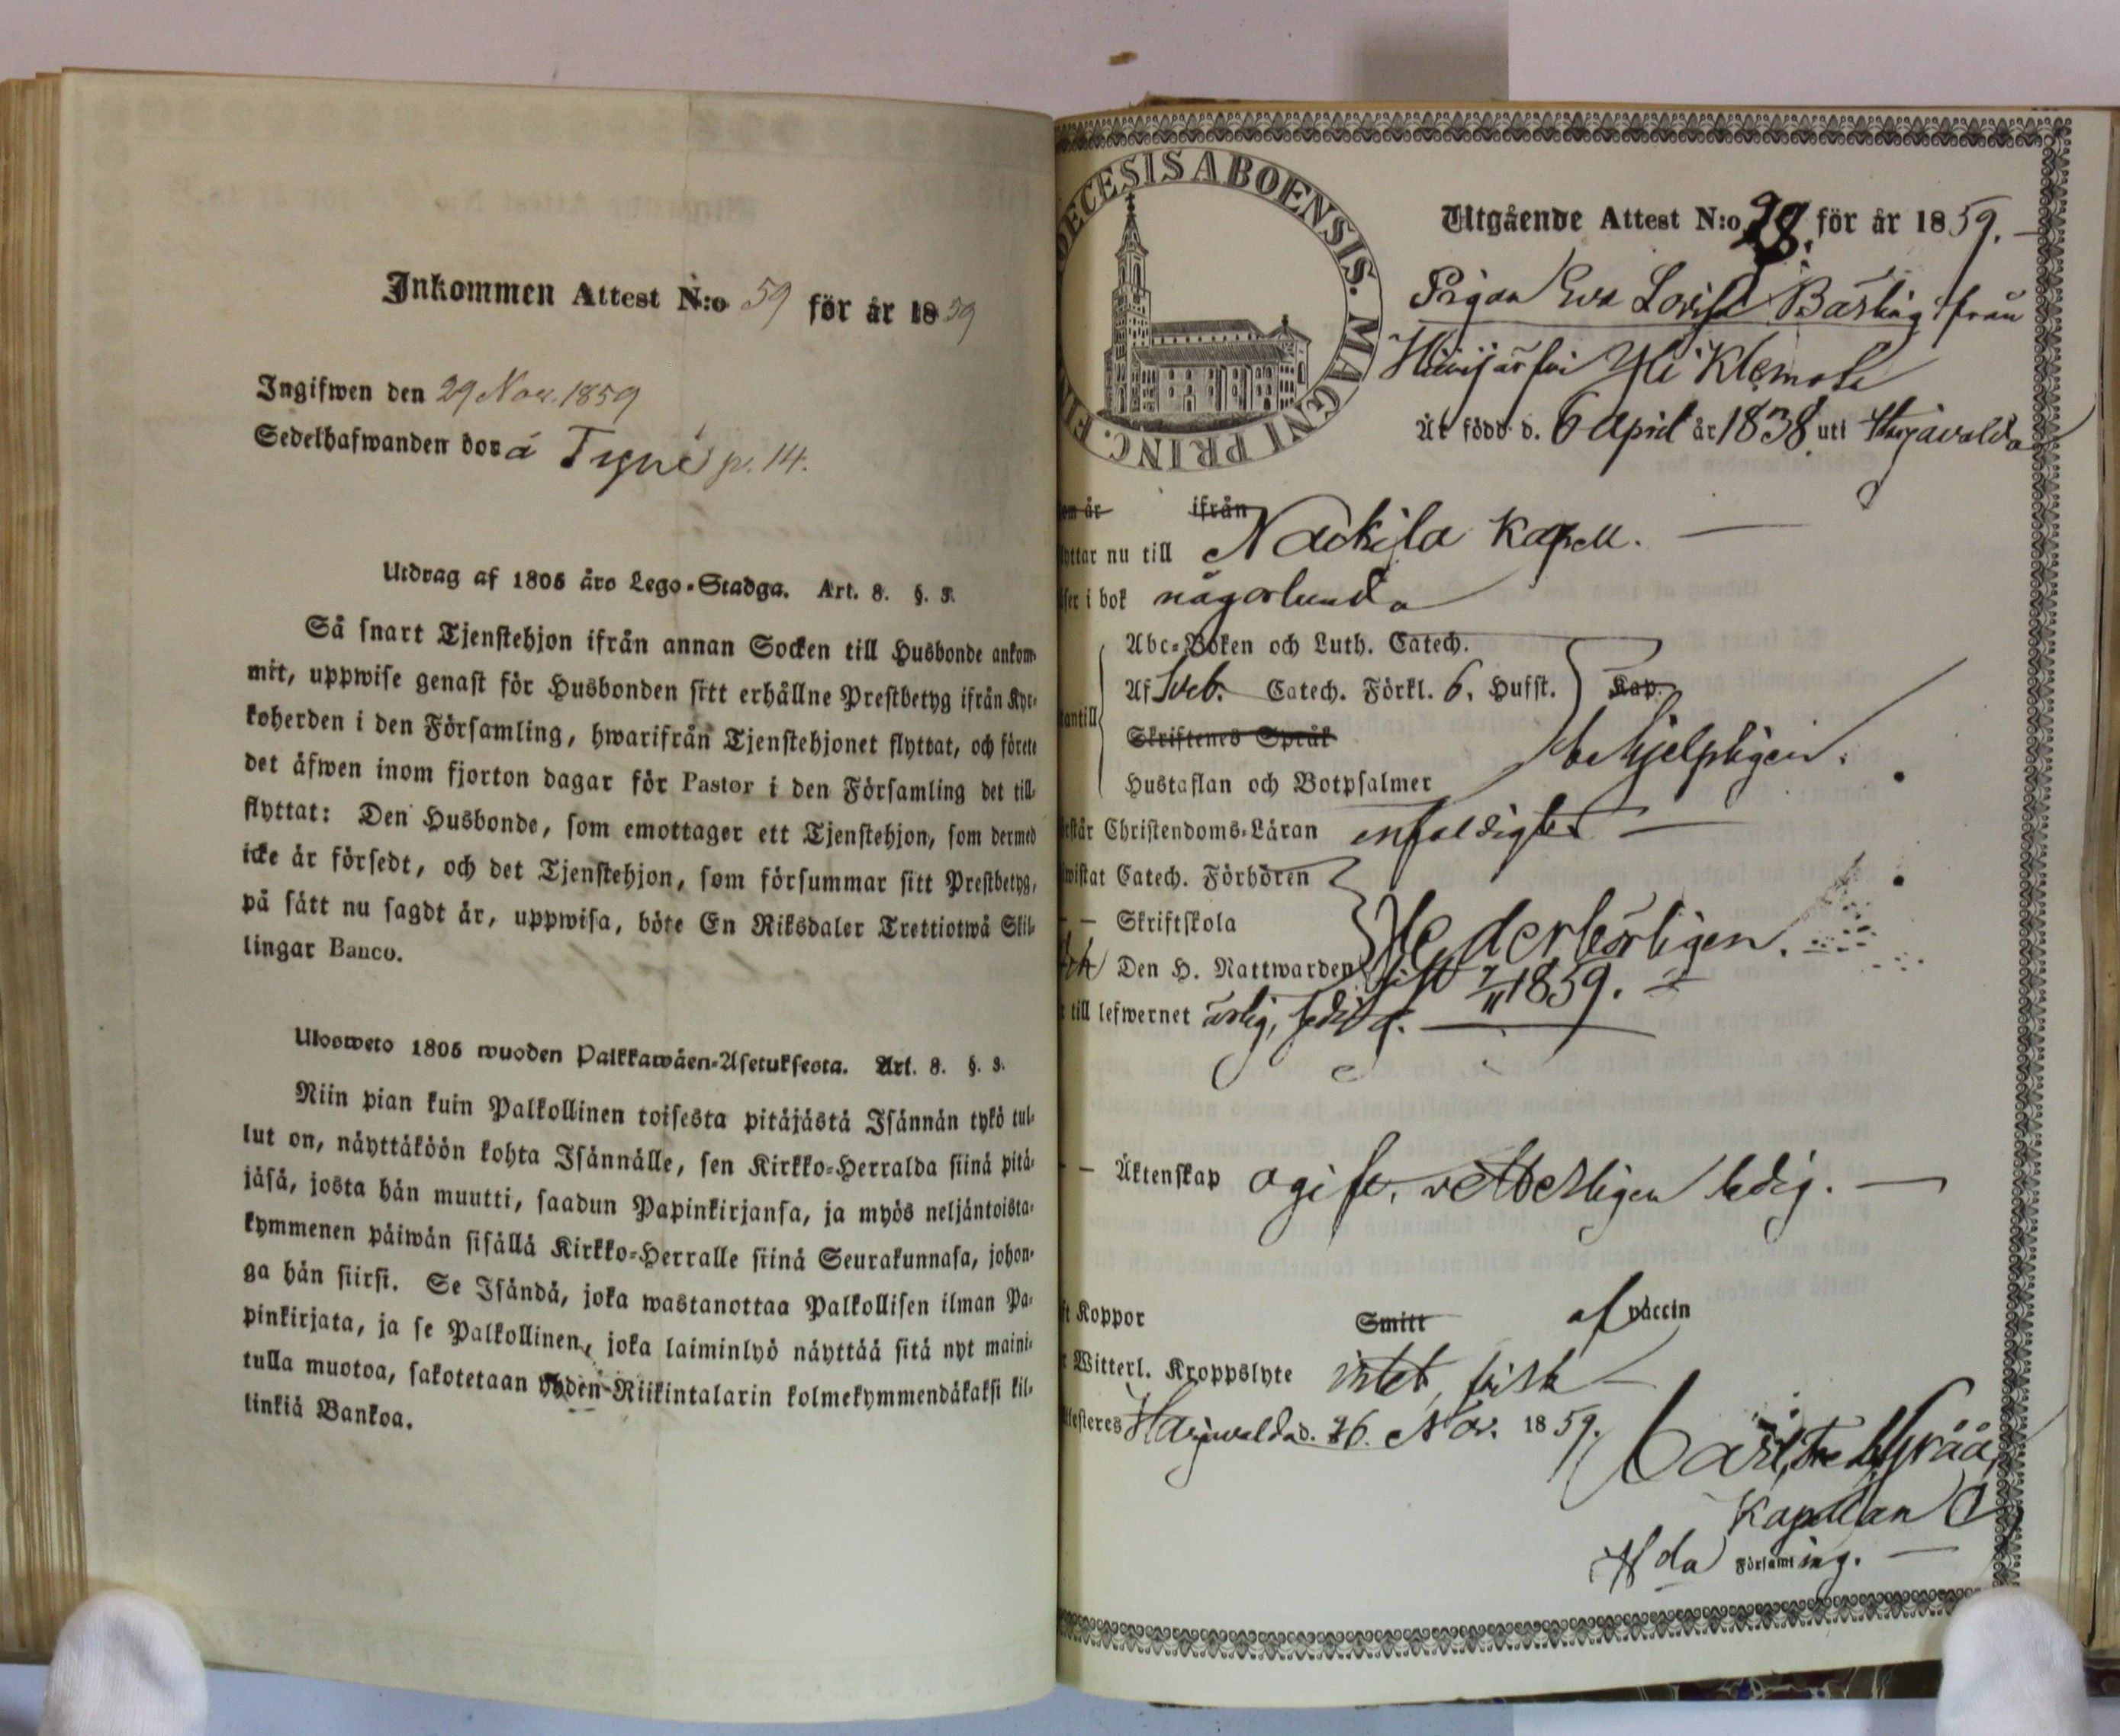 Inkommen Attest N:o 59 för år 1859
Ingifwen den 29 Nov. 1859
Sedelhafwanden bor á Tyni p. 14.
Utdrag af 1805 års Lego-Stadga. Art. 8. §. 3.
Så snart Tjenstehjon ifrån annan Socken till Husbonde ankom-
mit, uppwise genast för Husbonden sitt erhållne Prestbetyg ifrån Kyr-
koherden i den Församling, hwarifrån Tjenstehjonet flyttat, och förete
det äfwen inom fjorton dagar för Pastor i den Församling det till-
flyttat: Den Husbonde, som emottager ett Tjenstehjon, som dermed
icke är försedt, och det Tjenstehjon, som försummar sitt Prestbetyg,
på sätt nu sagdt är, uppwisa, böte En Riksdaler Trettiotwå Skil-
lingar Banco.
Ulosweto 1805 wuoden Palkkawäen-Asetuksesta. Art. 8. §. 3.
Niin pian kuin Palkollinen toisesta pitäjästä Isännän tykö tul-
lut on, näyttäköön kohta Isännälle, sen Kirkko-Herralda siinä pitä-
jäsä, josta hän muutti, saadun Papinkirjansa, ja myös neljäntoista-
kymmenen päiwän sisällä Kirkko-Herralle siinä Seurakunnasa, johon-
ga hän siirsi. Se Isändä, joka wastanottaa Palkollisen ilman Pa-
pinkirjata, ja se Palkollinen, joka laiminlyö näyttää sitä nyt maini-
tulla muotoa, sakotetaan yhden Riikintalarin kolmekymmendäkaksi kil-
linkiä Bankoa.
DIOECESIS ABOENSIS. MAGNI PRINC. FIN
Utgående Attest N:o 28. för år 1859.
Pigan Eva Lovisa Bärling från
Hiirijärvi Yli Klemola
Är född d. 6 April år 1838 uti Harjavalda
om är ifrån
lyttar nu till Nackila Kapell.
äser i bok någorlunda
Abc-Boken och Luth. Catech.
Af Sveb. Catech. Förkl. 6. Husst. Kap.
tantill
Skriftenes Språk
behjelpligen.
Hustaflan och Botpsalmer
rstår Christendoms-Läran enfaldigt
wistat Catech. Förhören
– – Skriftskola
Hederbörligen.
Den H. Nattwarden sist 7/11 1859.
r till lefwernet ärlig,
– – Äktenskap ogift, veterligen ledig.
ft Koppor Smitt af vaccin
r Witterl. Kroppslyte intet, frisk
ttesteres Harjavalda d. 26. Nov. 1859.
Kapellan
Hda Församling.